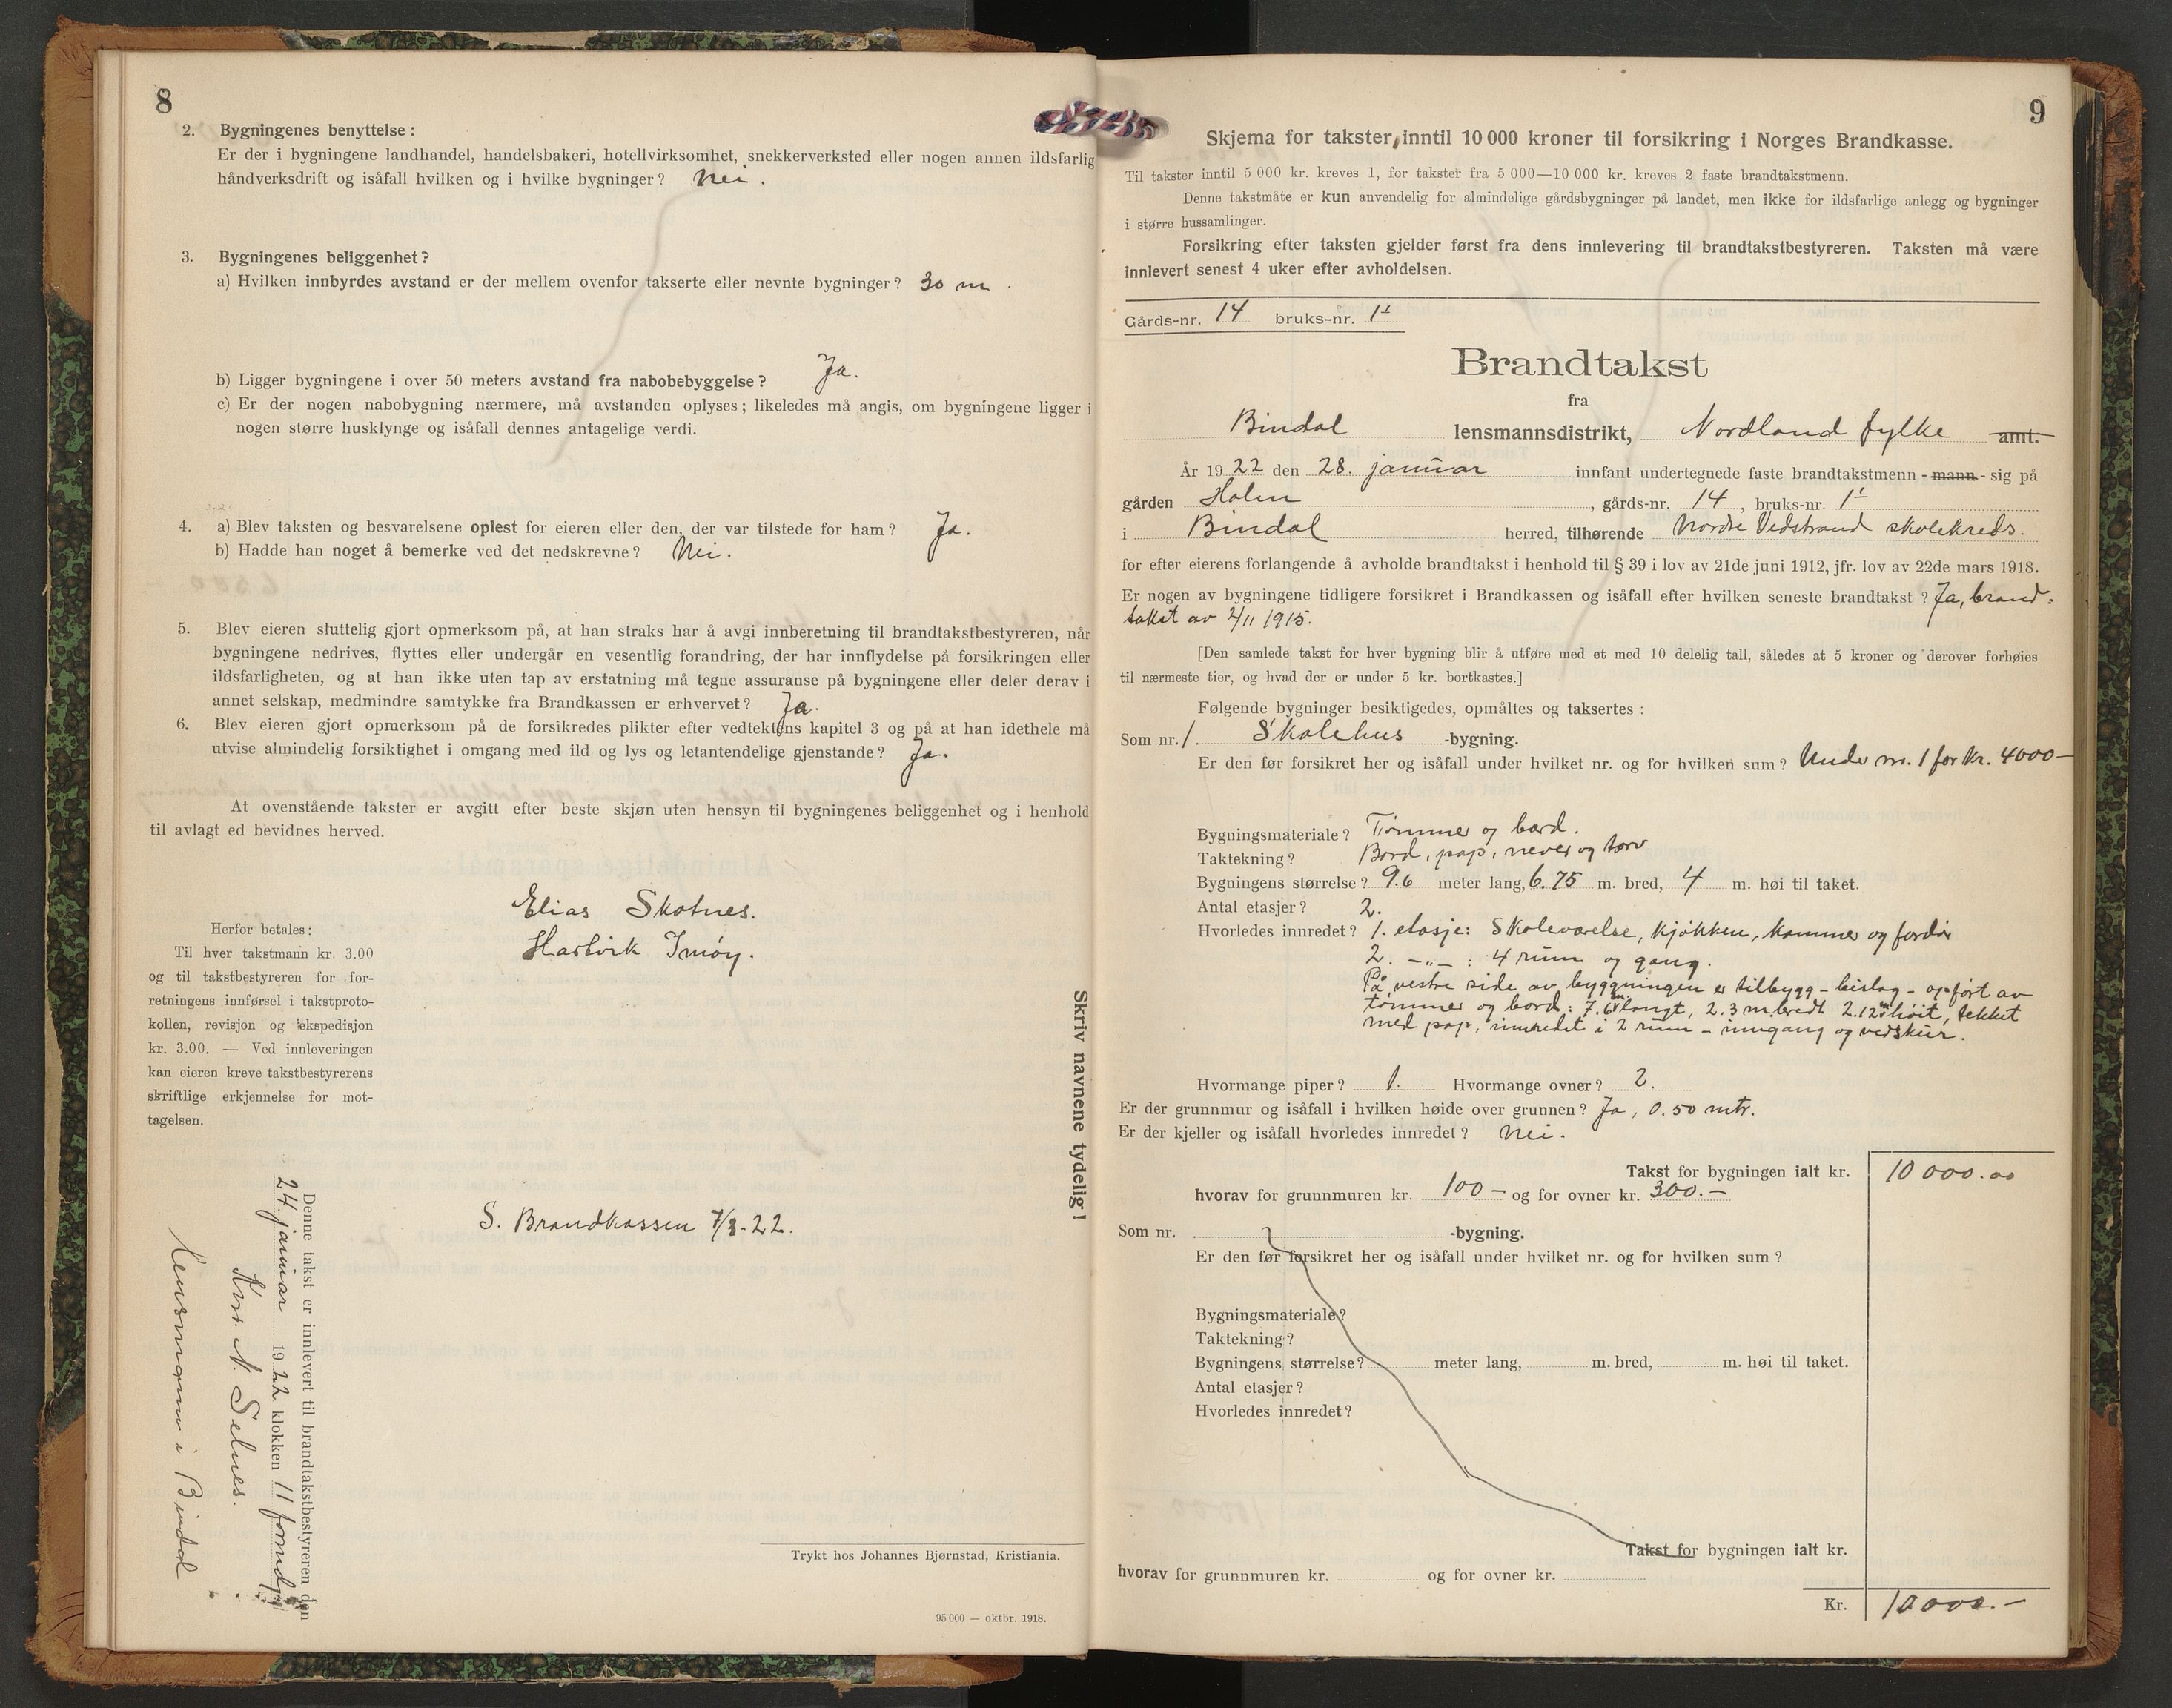 8
2. Bygningenes benyttelse:
Er der i bygningene landhandel, handelsbakeri, hotellvirksomhet, snekkerverksted eller nogen annen ildsfarlig
håndverksdrift og isåfall hvilken og i hvilke bygninger? Nei.
3. Bygningenes beliggenhet?
a) Hvilken innbyrdes avstand er der mellem ovenfor takserte eller nevnte bygninger? 30 m.
b) Ligger bygningene i over 50 meters avstand fra nabobebyggelse? Ja.
c) Er der nogen nabobygning nærmere, må avstanden oplyses; likeledes må angis, om bygningene ligger i
nogen større husklynge og isåfall dennes antagelige verdi.
4. a) Blev taksten og besvarelsene oplest for eieren eller den, der var tilstede for ham? Ja.
b) Hadde han noget å bemerke ved det nedskrevne? Nei.
5. Blev eieren sluttelig gjort opmerksom på, at han straks har å avgi innberetning til brandtakstbestyreren, når
bygningene nedrives, flyttes eller undergår en vesentlig forandring, der har innflydelse på forsikringen eller
ildsfarligheten, og at han ikke uten tap av erstatning må tegne assuranse på bygningene eller deler derav i
annet selskap, medmindre samtykke fra Brandkassen er erhvervet? Ja.
6. Blev eieren gjort opmerksom på de forsikredes plikter efter vedtektens kapitel 3 og på at han idethele må
utvise almindelig forsiktighet i omgang med ild og lys og letantendelige gjenstande? Ja.
At ovenstående takster er avgitt efter beste skjøn uten hensyn til bygningenes beliggenhet og i henhold
til avlagt ed bevidnes herved.
Elias Skotnes.
Hartvik Imøy.
Herfor betales:
Til hver takstmann kr. 3.00
og til takstbestyreren for for-
retningens innførsel i takstproto-
kollen, revisjon og ekspedisjon
kr. 3.00. — Ved innleveringen
kan eieren kreve takstbestyrerens
skriftlige erkjennelse for mot-
tagelsen.
Skriv navnene tydelig!
S. Brandkassen 7/3-22.
Denne takst er innlevert til brandtakstbestyreren den
24. januar 1922 klokken 11 formdg
Kr. N. Selnes.
Lensmann i Bindal
Trykt hos Johannes Bjørnstad, Kristiania.
95 000 — oktbr. 1918.
9
Skjema for takster inntil 10 000 kroner til forsikring i Norges Brandkasse.
Til takster inntil 5 000 kr. kreves 1, for takster fra 5 000—10 000 kr. kreves 2 faste brandtakstmenn.
Denne takstmåte er kun anvendelig for almindelige gårdsbygninger på landet, men ikke for ildsfarlige anlegg og bygninger
i større hussamlinger.
Forsikring efter taksten gjelder først fra dens innlevering til brandtakstbestyreren. Taksten må være
innlevert senest 4 uker efter avholdelsen.
Gårds-nr. 14 bruks-nr. 1
Brandtakst
fra
Bindal lensmannsdistrikt, Nordland fylke amt.
År 1922 den 28. januar innfant undertegnede faste brandtakstmenn - mann - sig på
gården Holm, gårds-nr. 14, bruks-nr. 1
i Bindal herred, tilhørende Nordre Vedstrand skolekreds.
for efter eierens forlangende å avholde brandtakst i henhold til § 39 i lov av 21de juni 1912, jfr. lov av 22de mars 1918.
Er nogen av bygningene tidligere forsikret i Brandkassen og isåfall efter hvilken seneste brandtakst? Ja, brand-
takst av 2/11 1915.
[Den samlede takst for hver bygning blir å utføre med et med 10 delelig tall, således at 5 kroner og derover forhøies
til nærmeste tier, og hvad der er under 5 kr. bortkastes.]
Følgende bygninger besiktigedes, opmåltes og taksertes:
Som nr. 1. Skolehus -bygning.
Er den før forsikret her og isåfall under hvilket nr. og for hvilken sum? Under nr. 1 for kr. 4000-
Bygningsmateriale? Tømmer og bord.
Taktekning? Bord, pap, never og torv
Bygningens størrelse? 9.6 meter lang, 6.75 m. bred, 4 m. høi til taket.
Antal etasjer? 2.
Hvorledes innredet? 1. etasje: Skoleværelse, kjøkken, kammer og fordør
2. -"- : 4 rum og gang.
På vestre side av byggningen er tilbygg - bislag - opført av
tømmer og bord: 7.6 m langt, 2.3 m bredt 2.12 m høit, tekket
med pap, innredet i 2 rum - inngang og vedskur.
Hvormange piper? 1. Hvormange ovner? 2.
Er der grunnmur og isåfall i hvilken høide over grunnen? Ja, 0.50 mtr.
Er der kjeller og isåfall hvorledes innredet? Nei.
Takst for bygningen ialt kr. 10 000.00
hvorav for grunnmuren kr. 100- og for ovner kr. 300.-
Som nr. -bygning.
Er den før forsikret her og isåfall under hvilket nr. og for hvilken sum?
Bygningsmateriale?
Taktekning?
Bygningens størrelse? meter lang, m. bred, m. høi til taket.
Antal etasjer?
Hvorledes innredet?
Takst for bygningen ialt kr.
hvorav for grunnmuren kr. og for ovner kr.
Kr. 10000.-